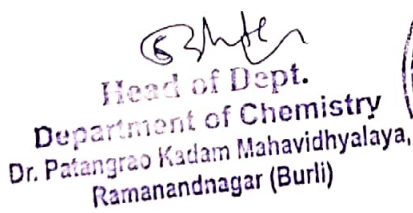 Head of Dept.
Department of Chemistry
Dr. Patangrao Kadam Mahavidhyalaya,
Ramanandnagar (Burli)